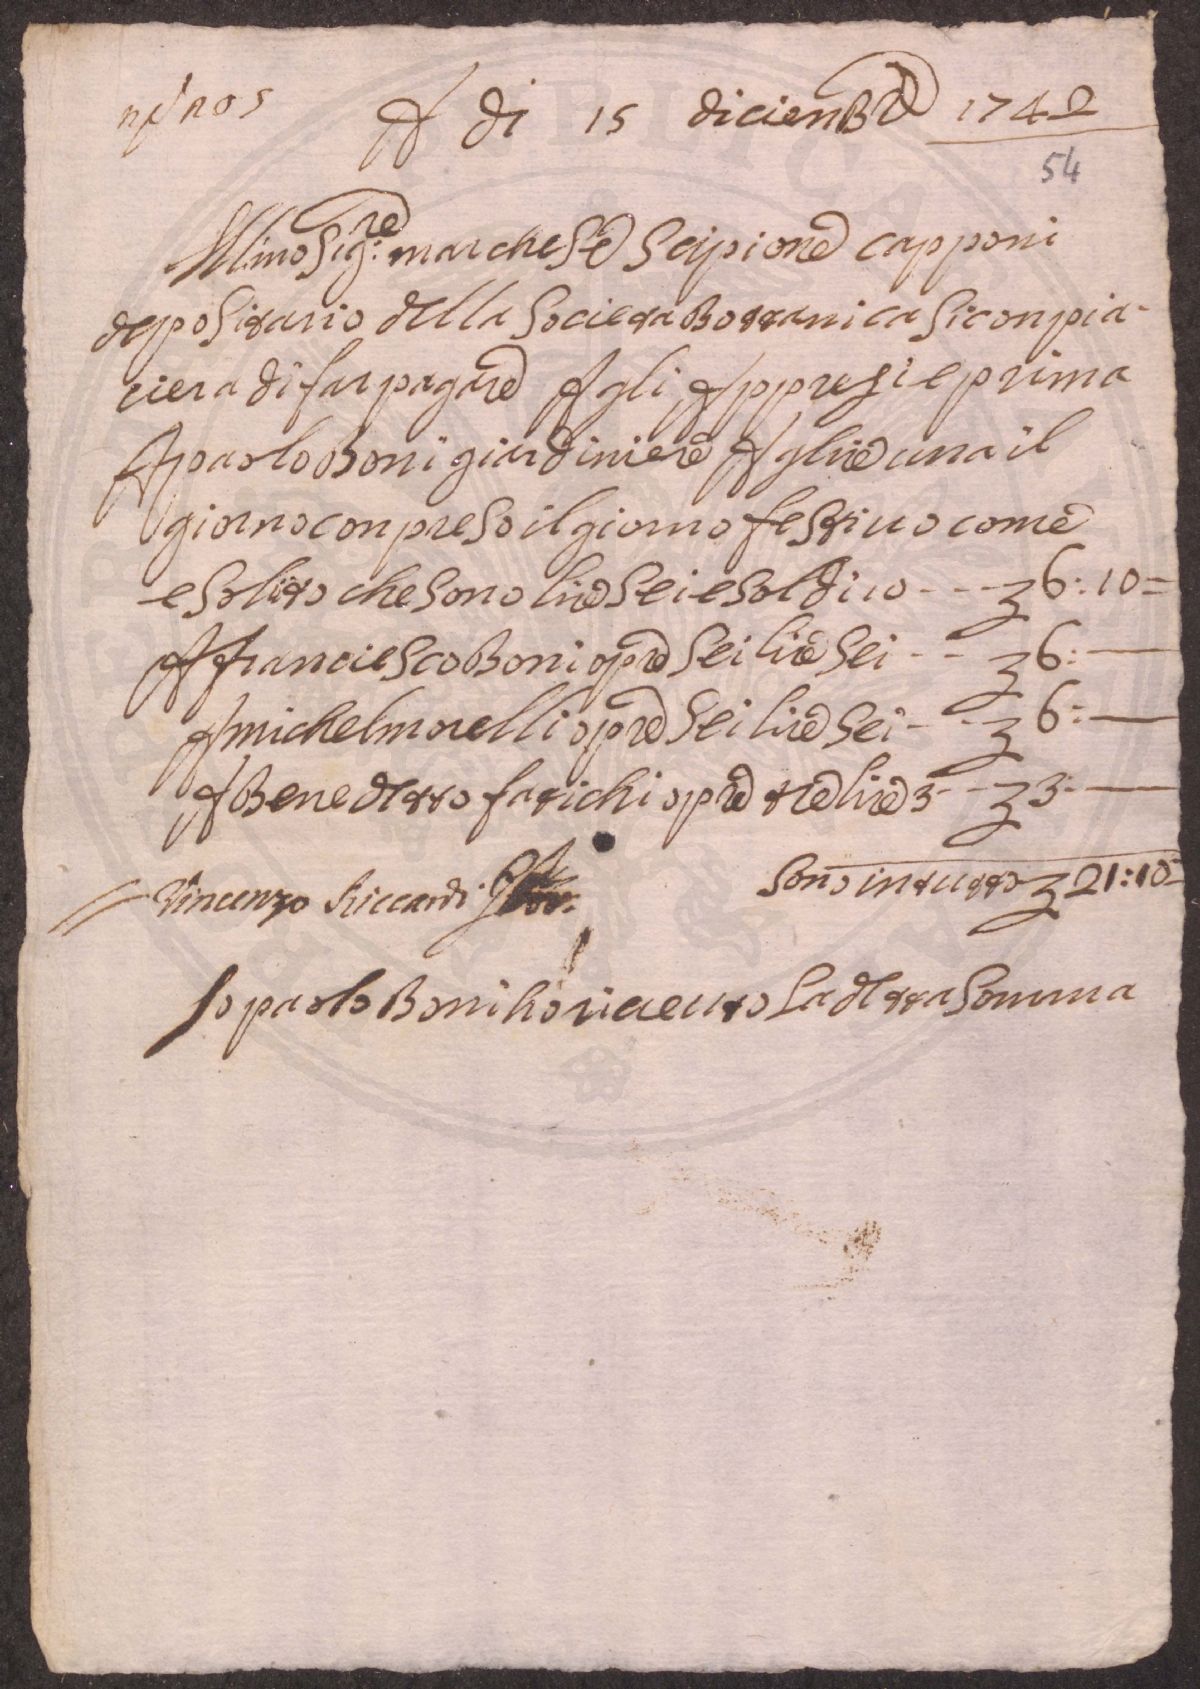 A di 15 dicienbre 1742
54
Illmo Sig:re marchese Scipione capponi
depositario della Societa Bottanica si conpia-
ciera di far pagare A gli Appresi e prima
A paolo Boni giardiniere A lire una il
giorno conpreso il giorno festiuo come
e solito che sono lire sei e soldi 10 - - - 6: 10 =
A franciesco Boni opre sei lire sei - - 6: —
A michel morelli opre sei lire sei - - 6: —
A Benedetto farichi opre tre lire 3 - - 3: —
Sono in tutto 21: 10 =
Vincenzo Riccardi
Io paolo Boni ho riceuto la detta somma